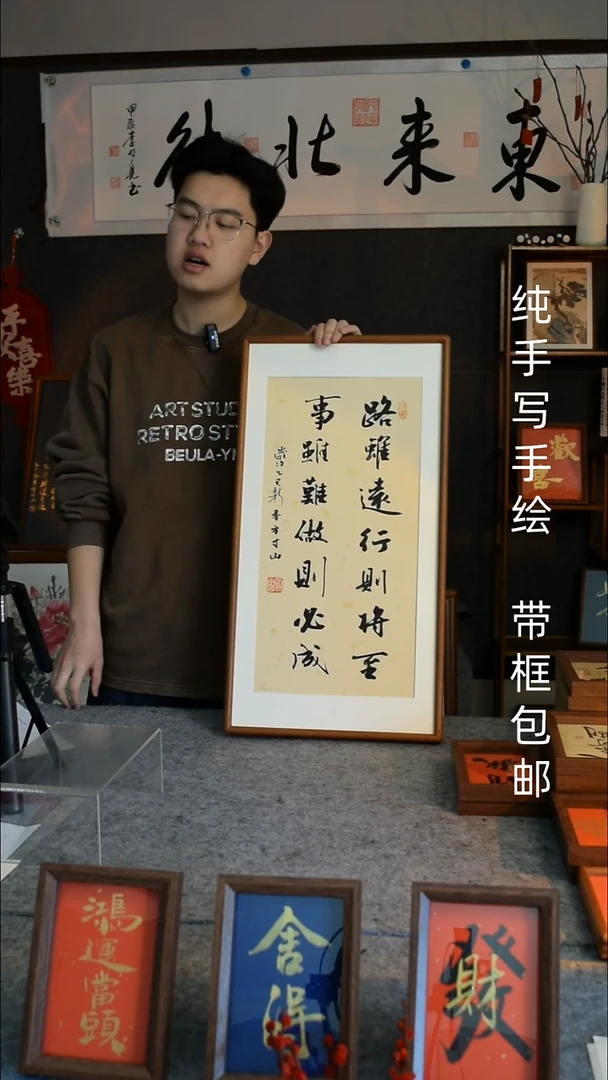 東来北往
甲辰
平安喜樂
ART STUD
RETRO STY
BEULA-YN
路雖遠行則將至
事雖難做則必成
歲次乙巳
方寸山
纯手写手绘 带框包邮
歡喜
鴻運當頭
舍得
發財